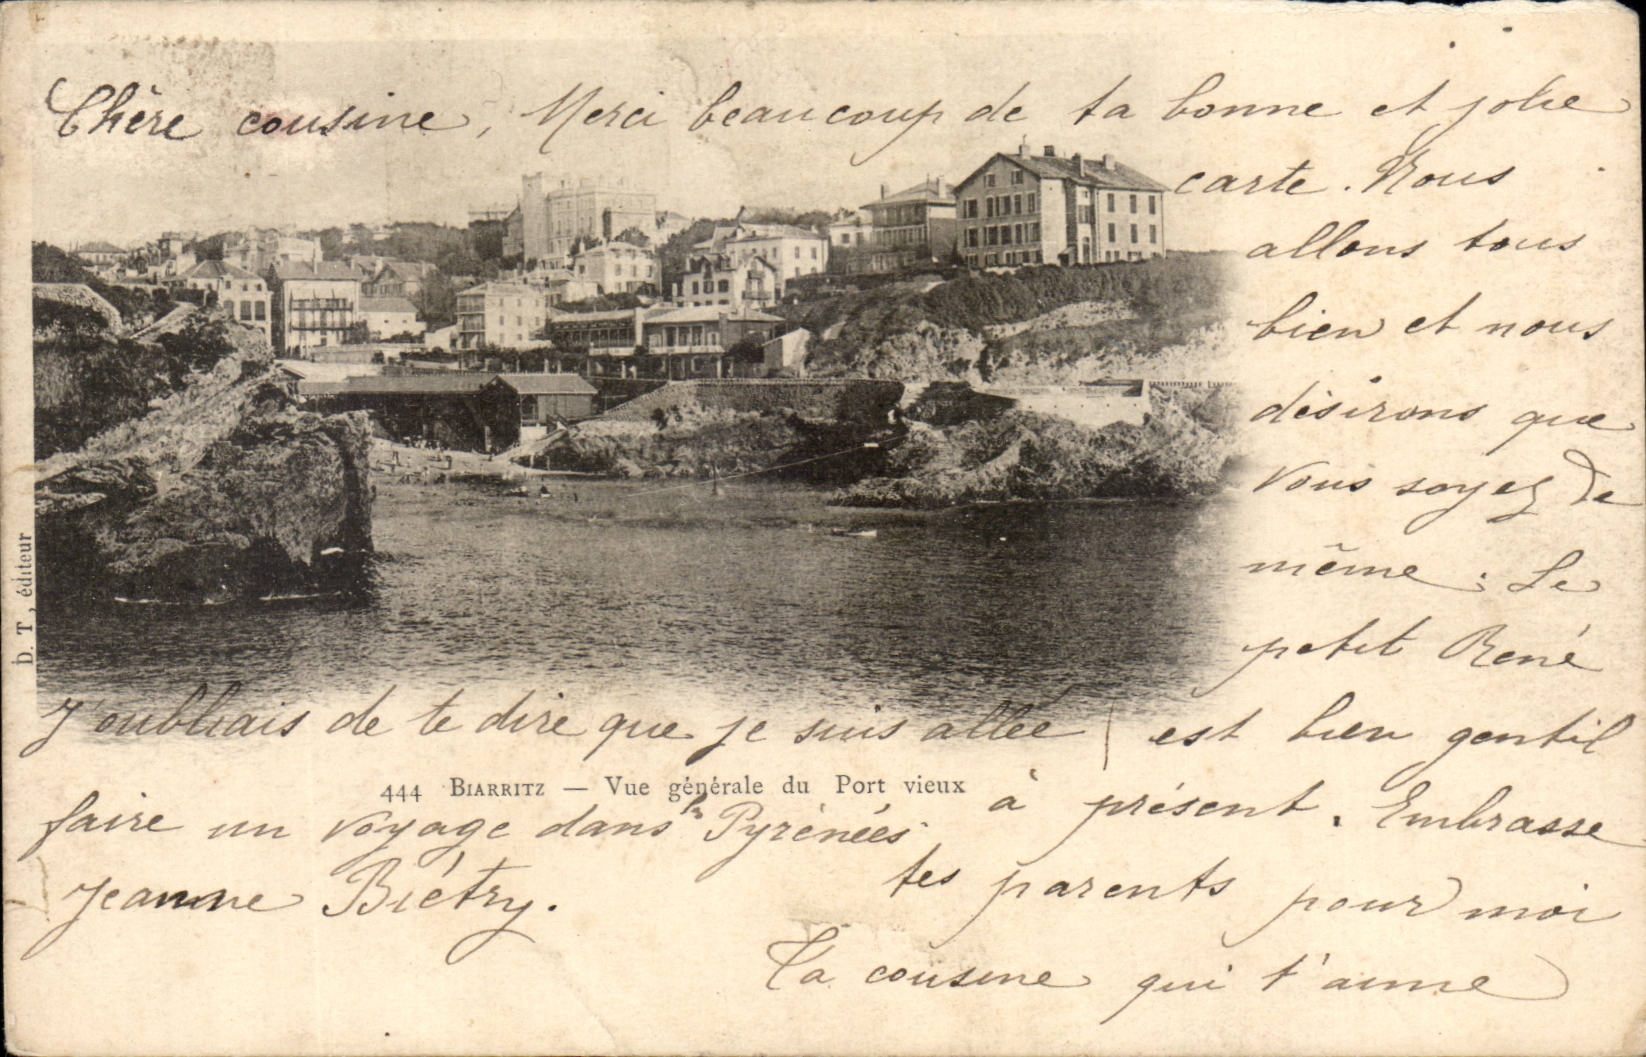 Chère cousine, Merci beaucoup de ta bonne et jolie
carte. Nous
allons tous
bien et nous
désirons que
vous soyez de
même. Le
petit René
est bien gentil
à présent. Embrasse
tes parents pour moi
Ta cousine qui t'aime
J'oubliais de te dire que je suis allée
faire un voyage dans les Pyrénées
Jeanne Biétry.
444 BIARRITZ — Vue générale du Port vieux
D. T., éditeur